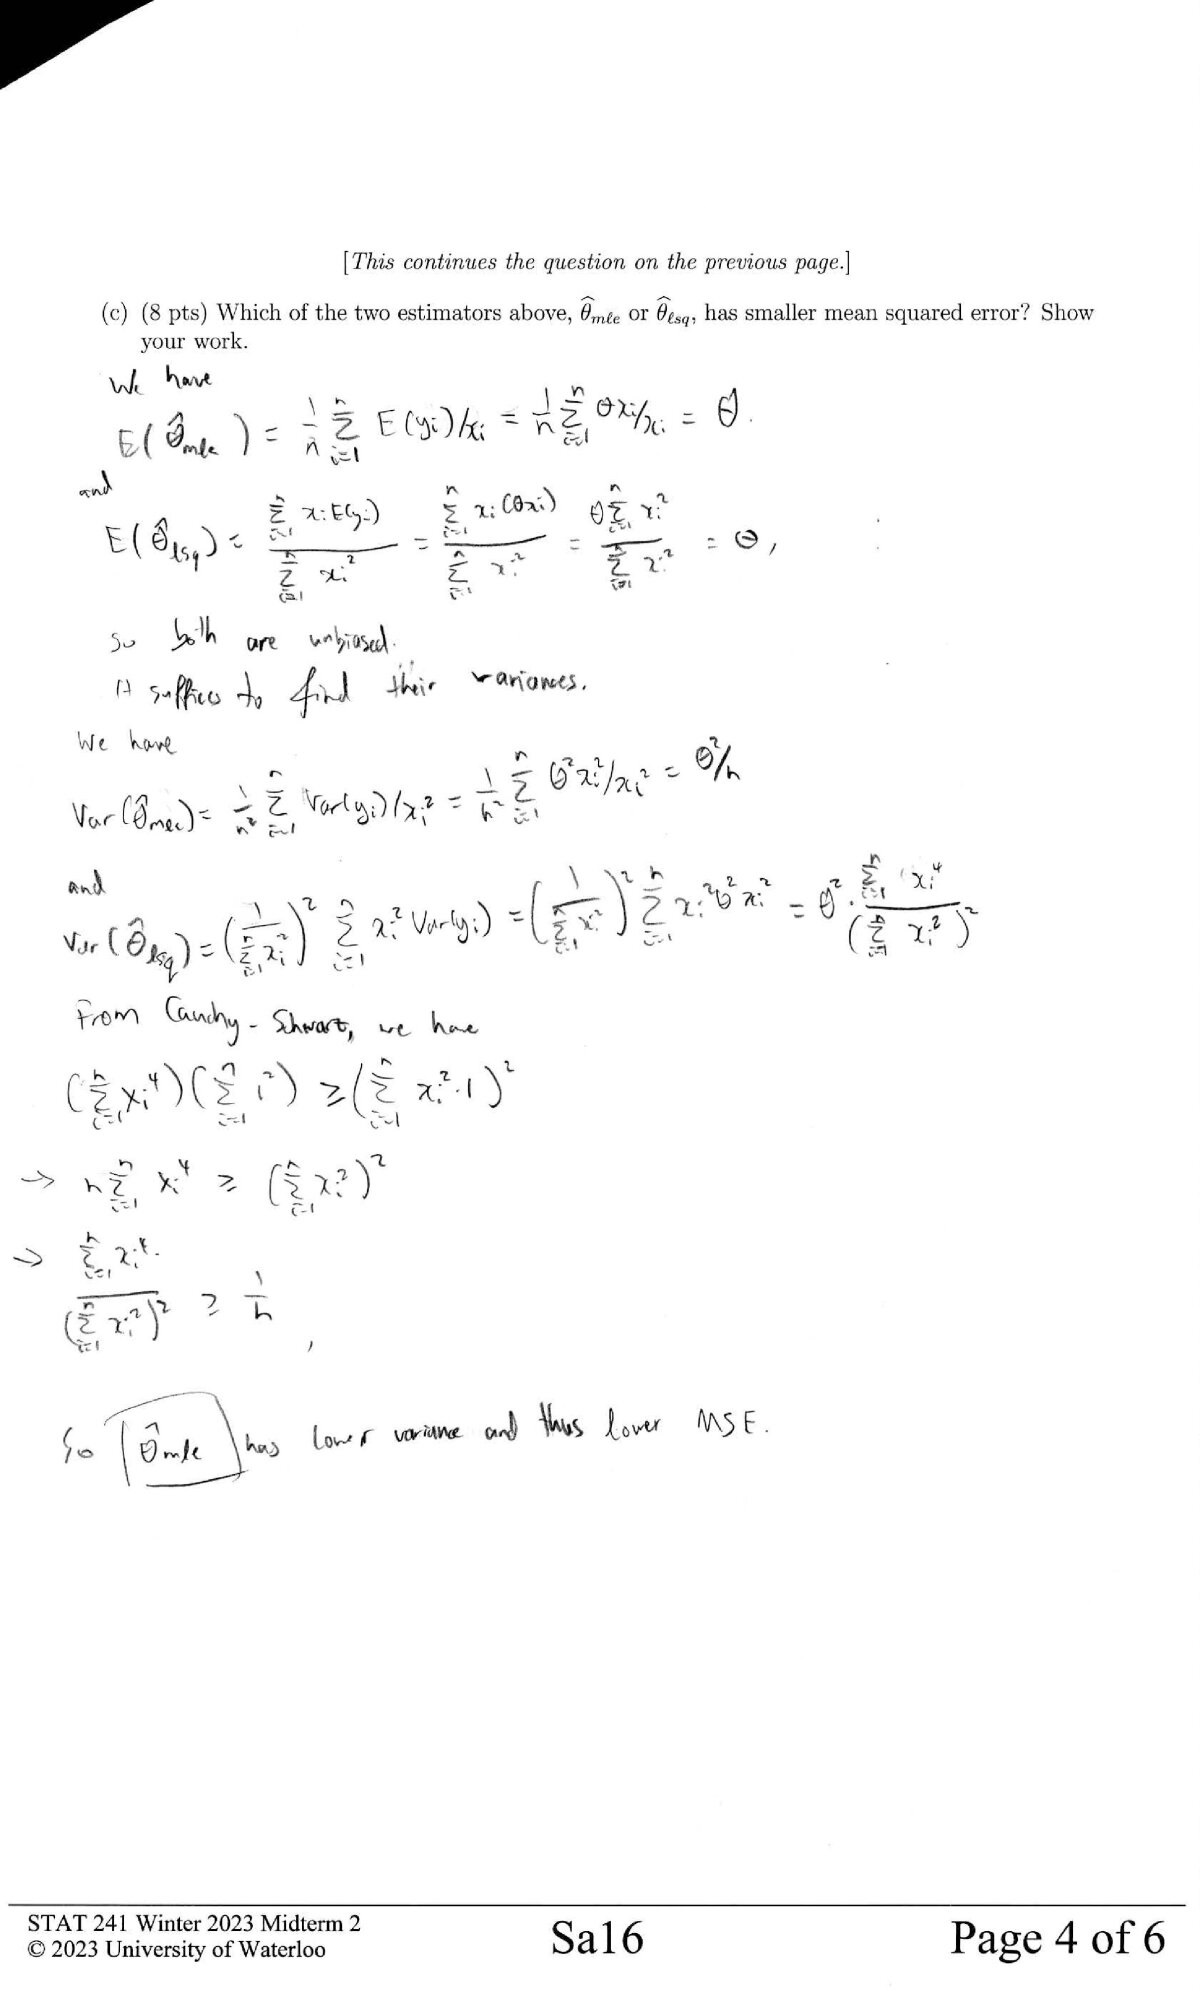 [This continues the question on the previous page.]
(c) (8 pts) Which of the two estimators above, θ̂_mle or θ̂_lsq, has smaller mean squared error? Show
your work.
We have
E(θ̂_mle) = 1/n Σ_{i=1}^n E(y_i)/x_i = 1/n Σ_{i=1}^n θx_i/x_i = θ.
and
E(θ̂_lsq) = (Σ_{i=1}^n x_i E(y_i))/(Σ_{i=1}^n x_i^2) = (Σ_{i=1}^n x_i(θx_i))/(Σ_{i=1}^n x_i^2) = (θ Σ_{i=1}^n x_i^2)/(Σ_{i=1}^n x_i^2) = θ,
so both are unbiased.
It suffices to find their variances.
We have
Var(θ̂_mle) = 1/n^2 Σ_{i=1}^n Var(y_i)/x_i^2 = 1/n^2 Σ_{i=1}^n θ^2 x_i^2/x_i^2 = θ^2/n
and
Var(θ̂_lsq) = (1/(Σ_{i=1}^n x_i^2))^2 Σ_{i=1}^n x_i^2 Var(y_i) = (1/(Σ_{i=1}^n x_i^2))^2 Σ_{i=1}^n x_i^2 θ^2 x_i^2 = θ^2 · (Σ_{i=1}^n x_i^4)/(Σ_{i=1}^n x_i^2)^2
From Cauchy-Schwartz, we have
(Σ_{i=1}^n x_i^4)(Σ_{i=1}^n 1^2) ≥ (Σ_{i=1}^n x_i^2·1)^2
→ n Σ_{i=1}^n x_i^4 ≥ (Σ_{i=1}^n x_i^2)^2
→ (Σ_{i=1}^n x_i^4)/(Σ_{i=1}^n x_i^2)^2 ≥ 1/n,
So θ̂_mle has lower variance and thus lower MSE.
STAT 241 Winter 2023 Midterm 2
© 2023 University of Waterloo
Sa16
Page 4 of 6